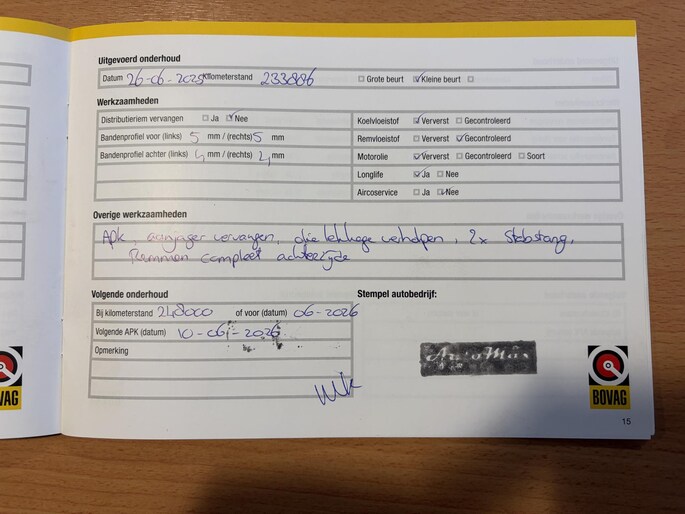 Uitgevoerd onderhoud
Datum 26-06-2025 Kilometerstand 233886 Grote beurt Kleine beurt
Werkzaamheden
Distributieriem vervangen Ja Nee
Koelvloeistof Ververst Gecontroleerd
Bandenprofiel voor (links) 5 mm / (rechts) 5 mm
Remvloeistof Ververst Gecontroleerd
Bandenprofiel achter (links) 4 mm / (rechts) 4 mm
Motorolie Ververst Gecontroleerd Soort
Longlife Ja Nee
Aircoservice Ja Nee
Overige werkzaamheden
Apk, aanjager vervangen, olielekkage verholpen, 2x Stabstang,
Remmen compleet achterzijde
Volgende onderhoud
Stempel autobedrijf:
Bij kilometerstand 248000 of voor (datum) 06-2026
Volgende APK (datum) 10-06-2026
Opmerking
AutoMax
BOVAG
BOVAG
15